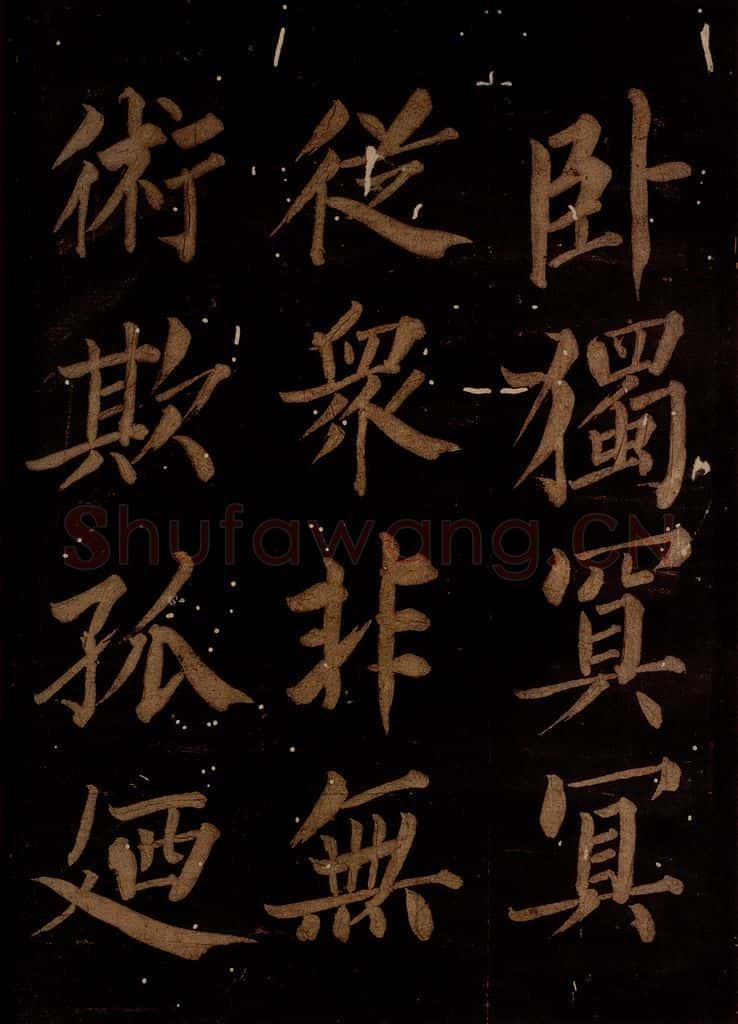 臥獨冥冥
從衆非無
術欺孤廼
Shufawang.CN